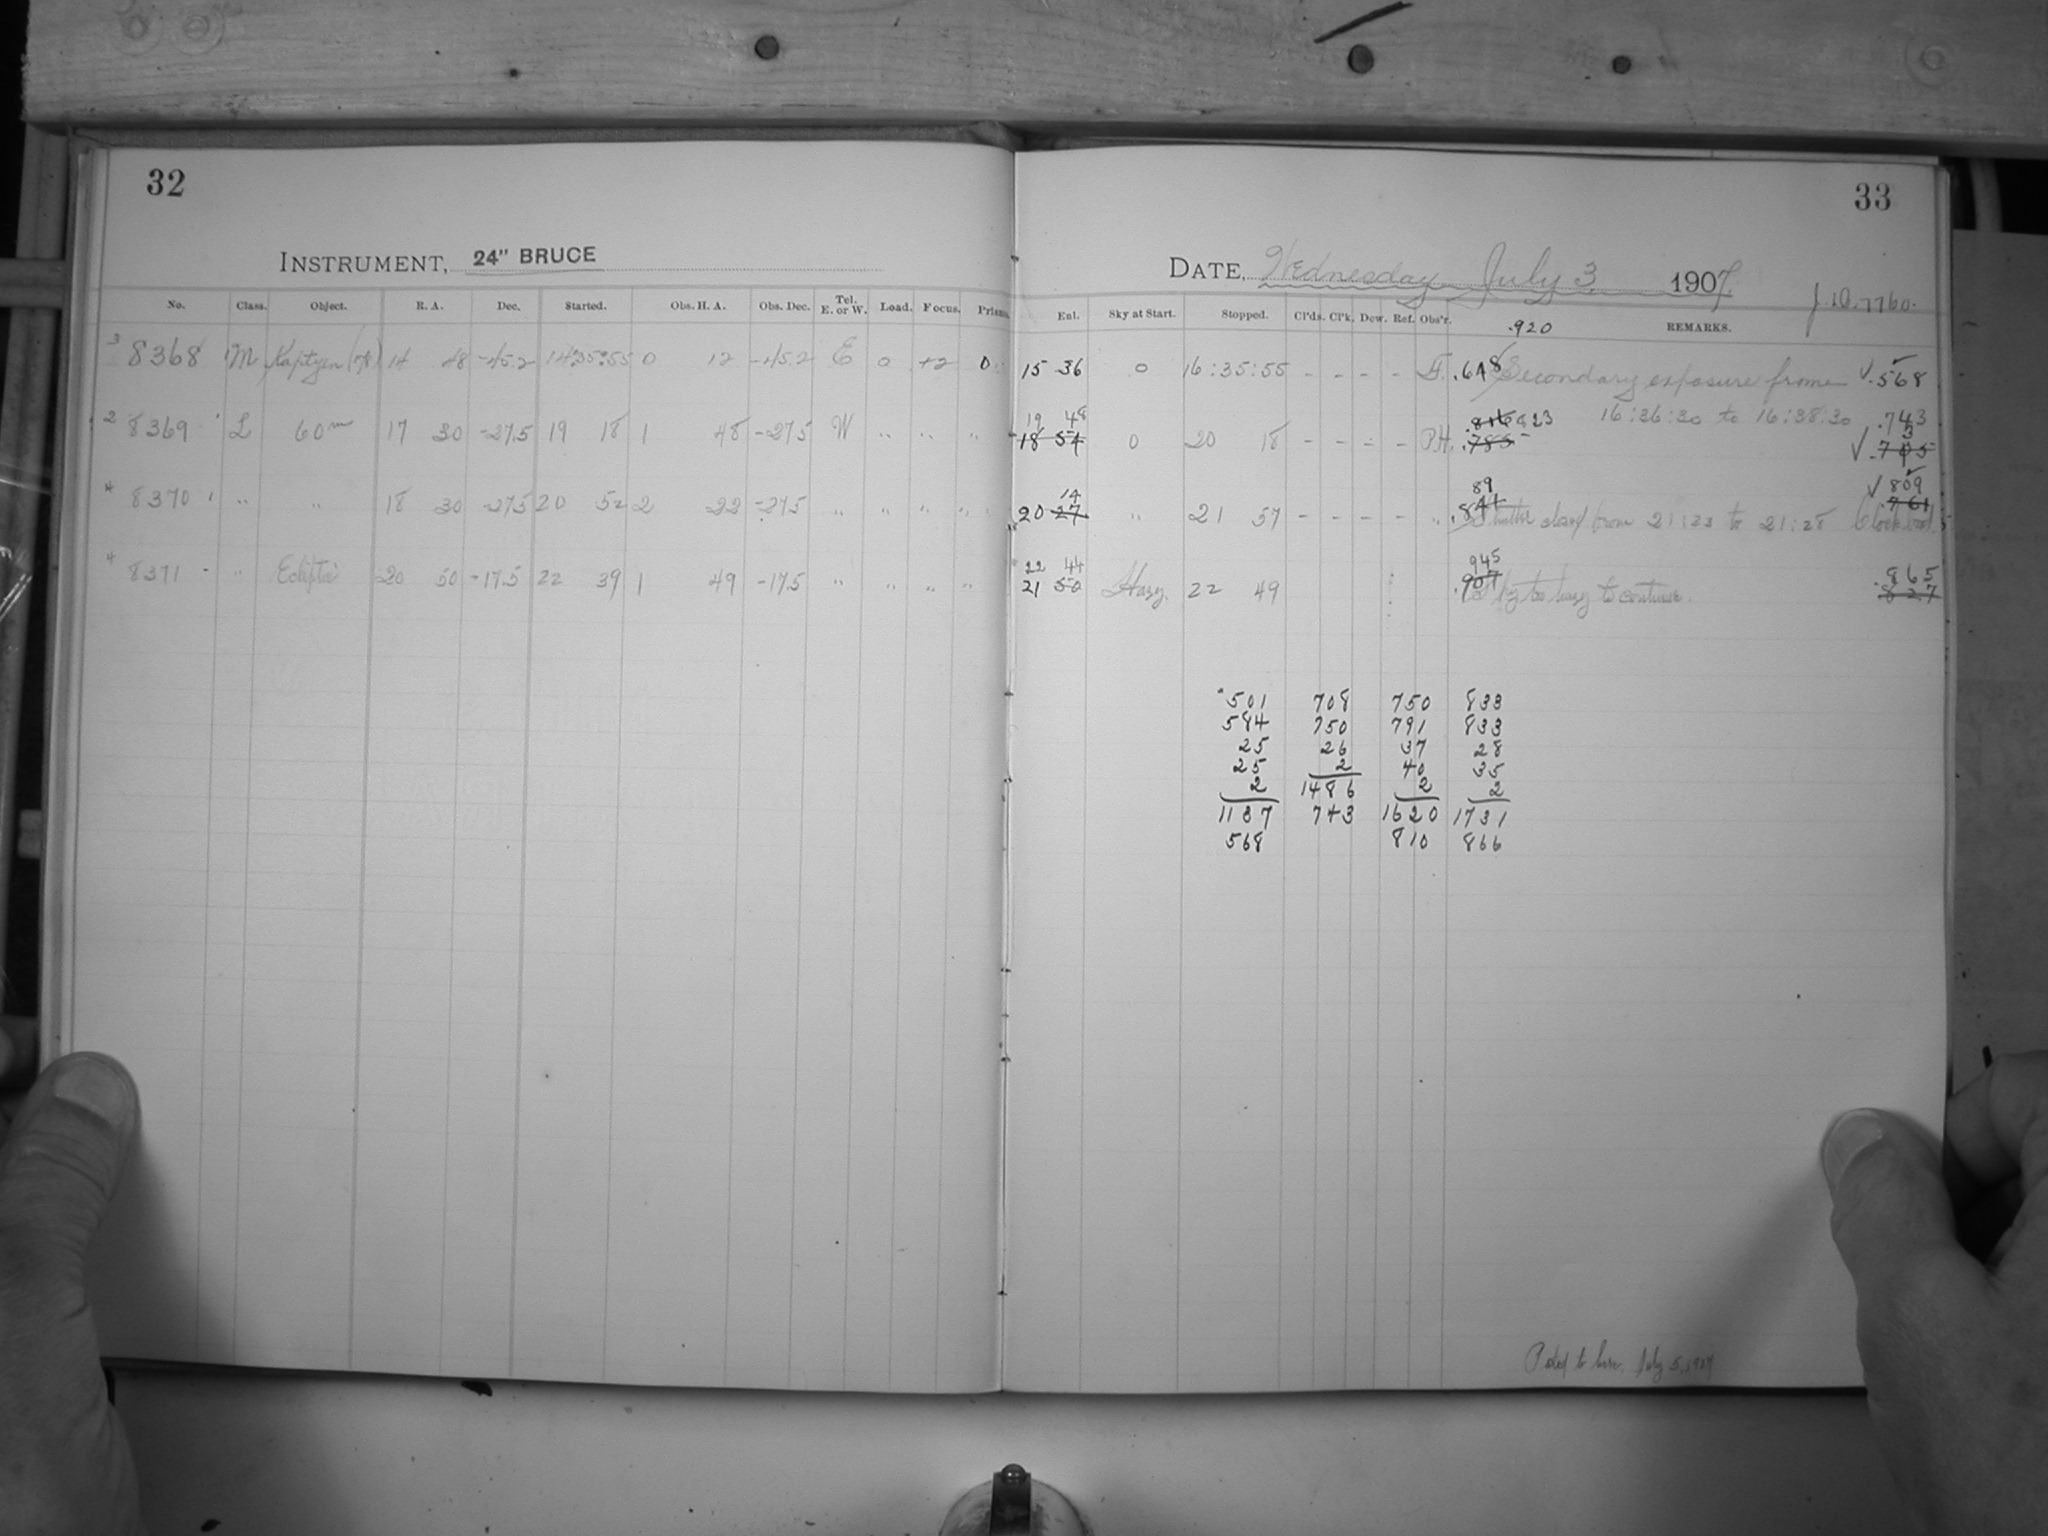 32
INSTRUMENT, 24" BRUCE
No. Class. Object. R. A. Dec. Started. Obs. H. A. Obs. Dec. Tel. E. or W. Load. Focus. Prism.
3 8368 M Kapteyn (78) 14 48 -45.2 14 35:55 0 12 -45.2 E 0 +2 0
2 8369 L 60m 17 30 -27.5 19 18 1 48 -27.5 W " " "
* 8370 " " 18 30 -27.5 20 52 2 22 -27.5 " " " "
4 8371 " Ecliptic 20 50 -17.5 22 39 1 49 -17.5 " " " "
33
DATE, Wednesday July 3, 1907.
J.D. 7760.
Enl. Sky at Start. Stopped. Cl'ds. Cl'k. Dew. Ref. Obs'r. .920 REMARKS.
15 36 0 16:35:55 - - - - .648 Secondary exposure from √.568
19 48 .816 823 16:36:30 to 16:38:30 .743
18 54 0 20 18 - - - - P.H. .785 √.705
14 89 √ 809
20 27 " 21 57 - - - - " .841 Shutter closed from 21:23 to 21:28 .761
22 44 945 .865
21 50 Hazy. 22 49 .907 Sky too hazy to continue. .827
501 708 750 833
584 750 791 833
25 26 37 28
25 2 40 35
2 1486 2 2
1137 743 1620 1731
568 810 866
July 5, 1907